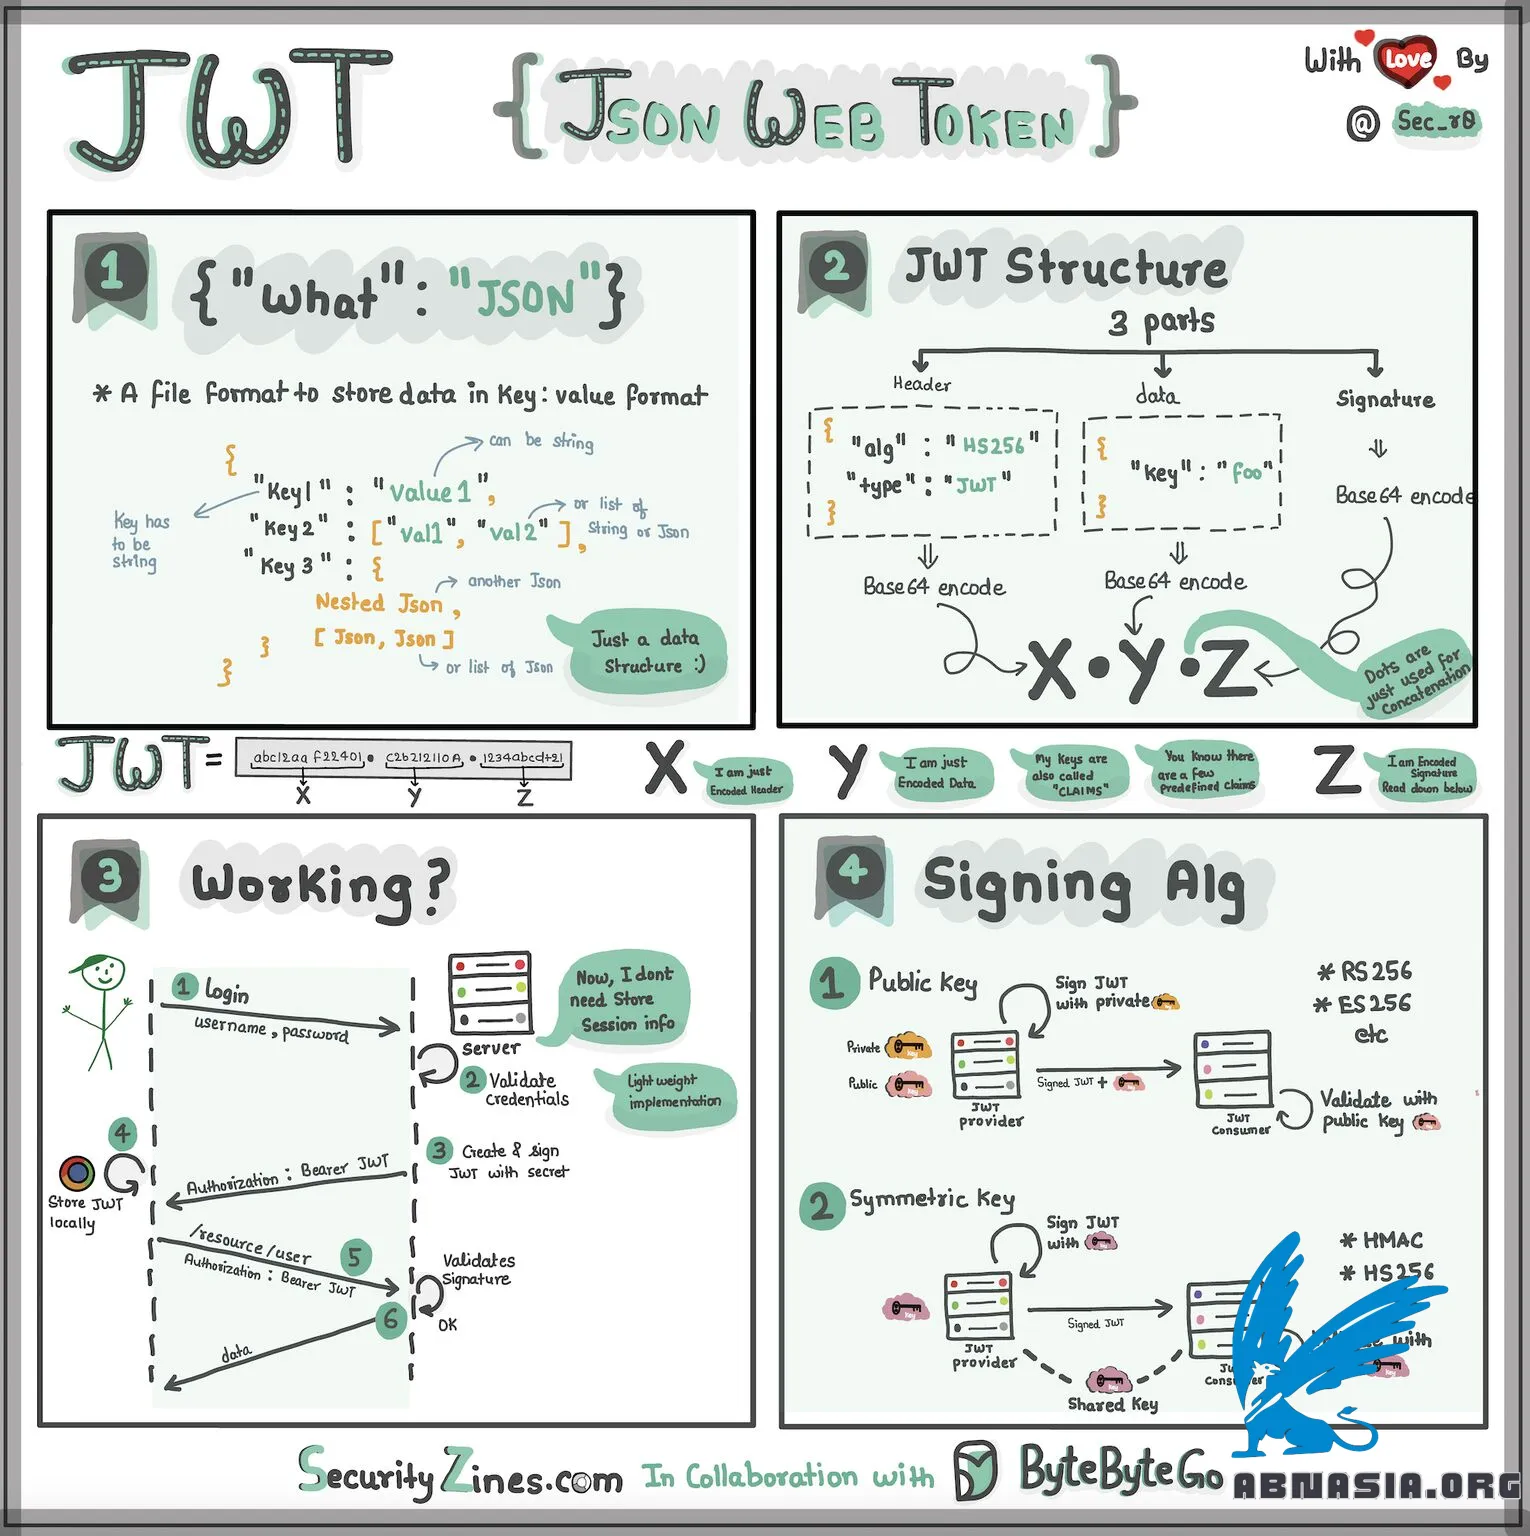 JWT
{ JSON WEB TOKEN }
With Love By
@ Sec_r0
1
{ "What" : "JSON" }
* A file format to store data in Key : value format
{
can be string
"Key1" : "Value1",
Key has
to be
string
"Key2" : ["val1", "val2"],
or list of
String or Json
"Key 3" : {
another Json
Nested Json ,
[ Json, Json ]
}
or list of Json
}
Just a data
Structure :)
2
JWT Structure
3 parts
Header
data
Signature
{
"alg" : "HS256"
"type" : "JWT"
}
{
"key" : "foo"
}
Base64 encode
Base64 encode
Base64 encode
X.Y.Z
Dots are
just used for
Concatenation
JWT =
abc12aa f22401 . c2b212110A . 1234abcd+21
X
Y
Z
X
I am just
Encoded Header
Y
I am just
Encoded Data
My Keys are
also called
"CLAIMS"
You Know there
are a few
predefined claims
Z
I am Encoded
Signature
Read down below
3
Working?
1 login
username, password
Server
Now, I dont
need Store
Session info
2 Validate
Credentials
Light weight
implementation
3 Create & sign
JWT with secret
Authorization : Bearer JWT
4
Store JWT
locally
/resource/user
5
Authorization : Bearer JWT
Validates
Signature
OK
6
data
4
Signing Alg
1 Public Key
Sign JWT
with private
* RS256
* ES256
etc
Private
Public
Signed JWT +
JWT
provider
JWT
Consumer
Validate with
public Key
2 Symmetric Key
Sign JWT
with
* HMAC
* HS256
Signed JWT
JWT
provider
with
Shared Key
SecurityZines.com In Collaboration with ByteByteGo
ABNASIA.ORG